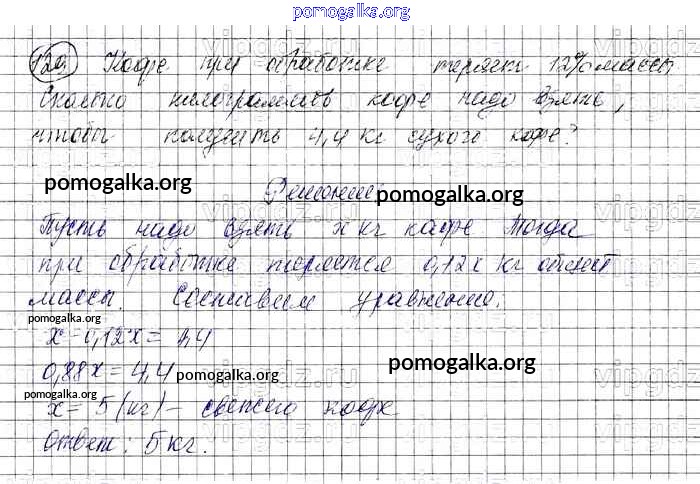 pomogalka.org
129. Кофе при обработке теряет 12% массы
Сколько килограммов кофе надо взять,
чтобы получить 4,4 кг сухого кофе?
pomogalka.org
Решение
pomogalka.org
Пусть надо взять x кг кофе Тогда
при обработке теряется 0,12x кг
массы. Составим уравнение.
pomogalka.org
x-0,12x=4,4
0,88x=4,4
pomogalka.org
pomogalka.org
pomogalka.org
x=5(кг)- свежего кофе
Ответ: 5кг.